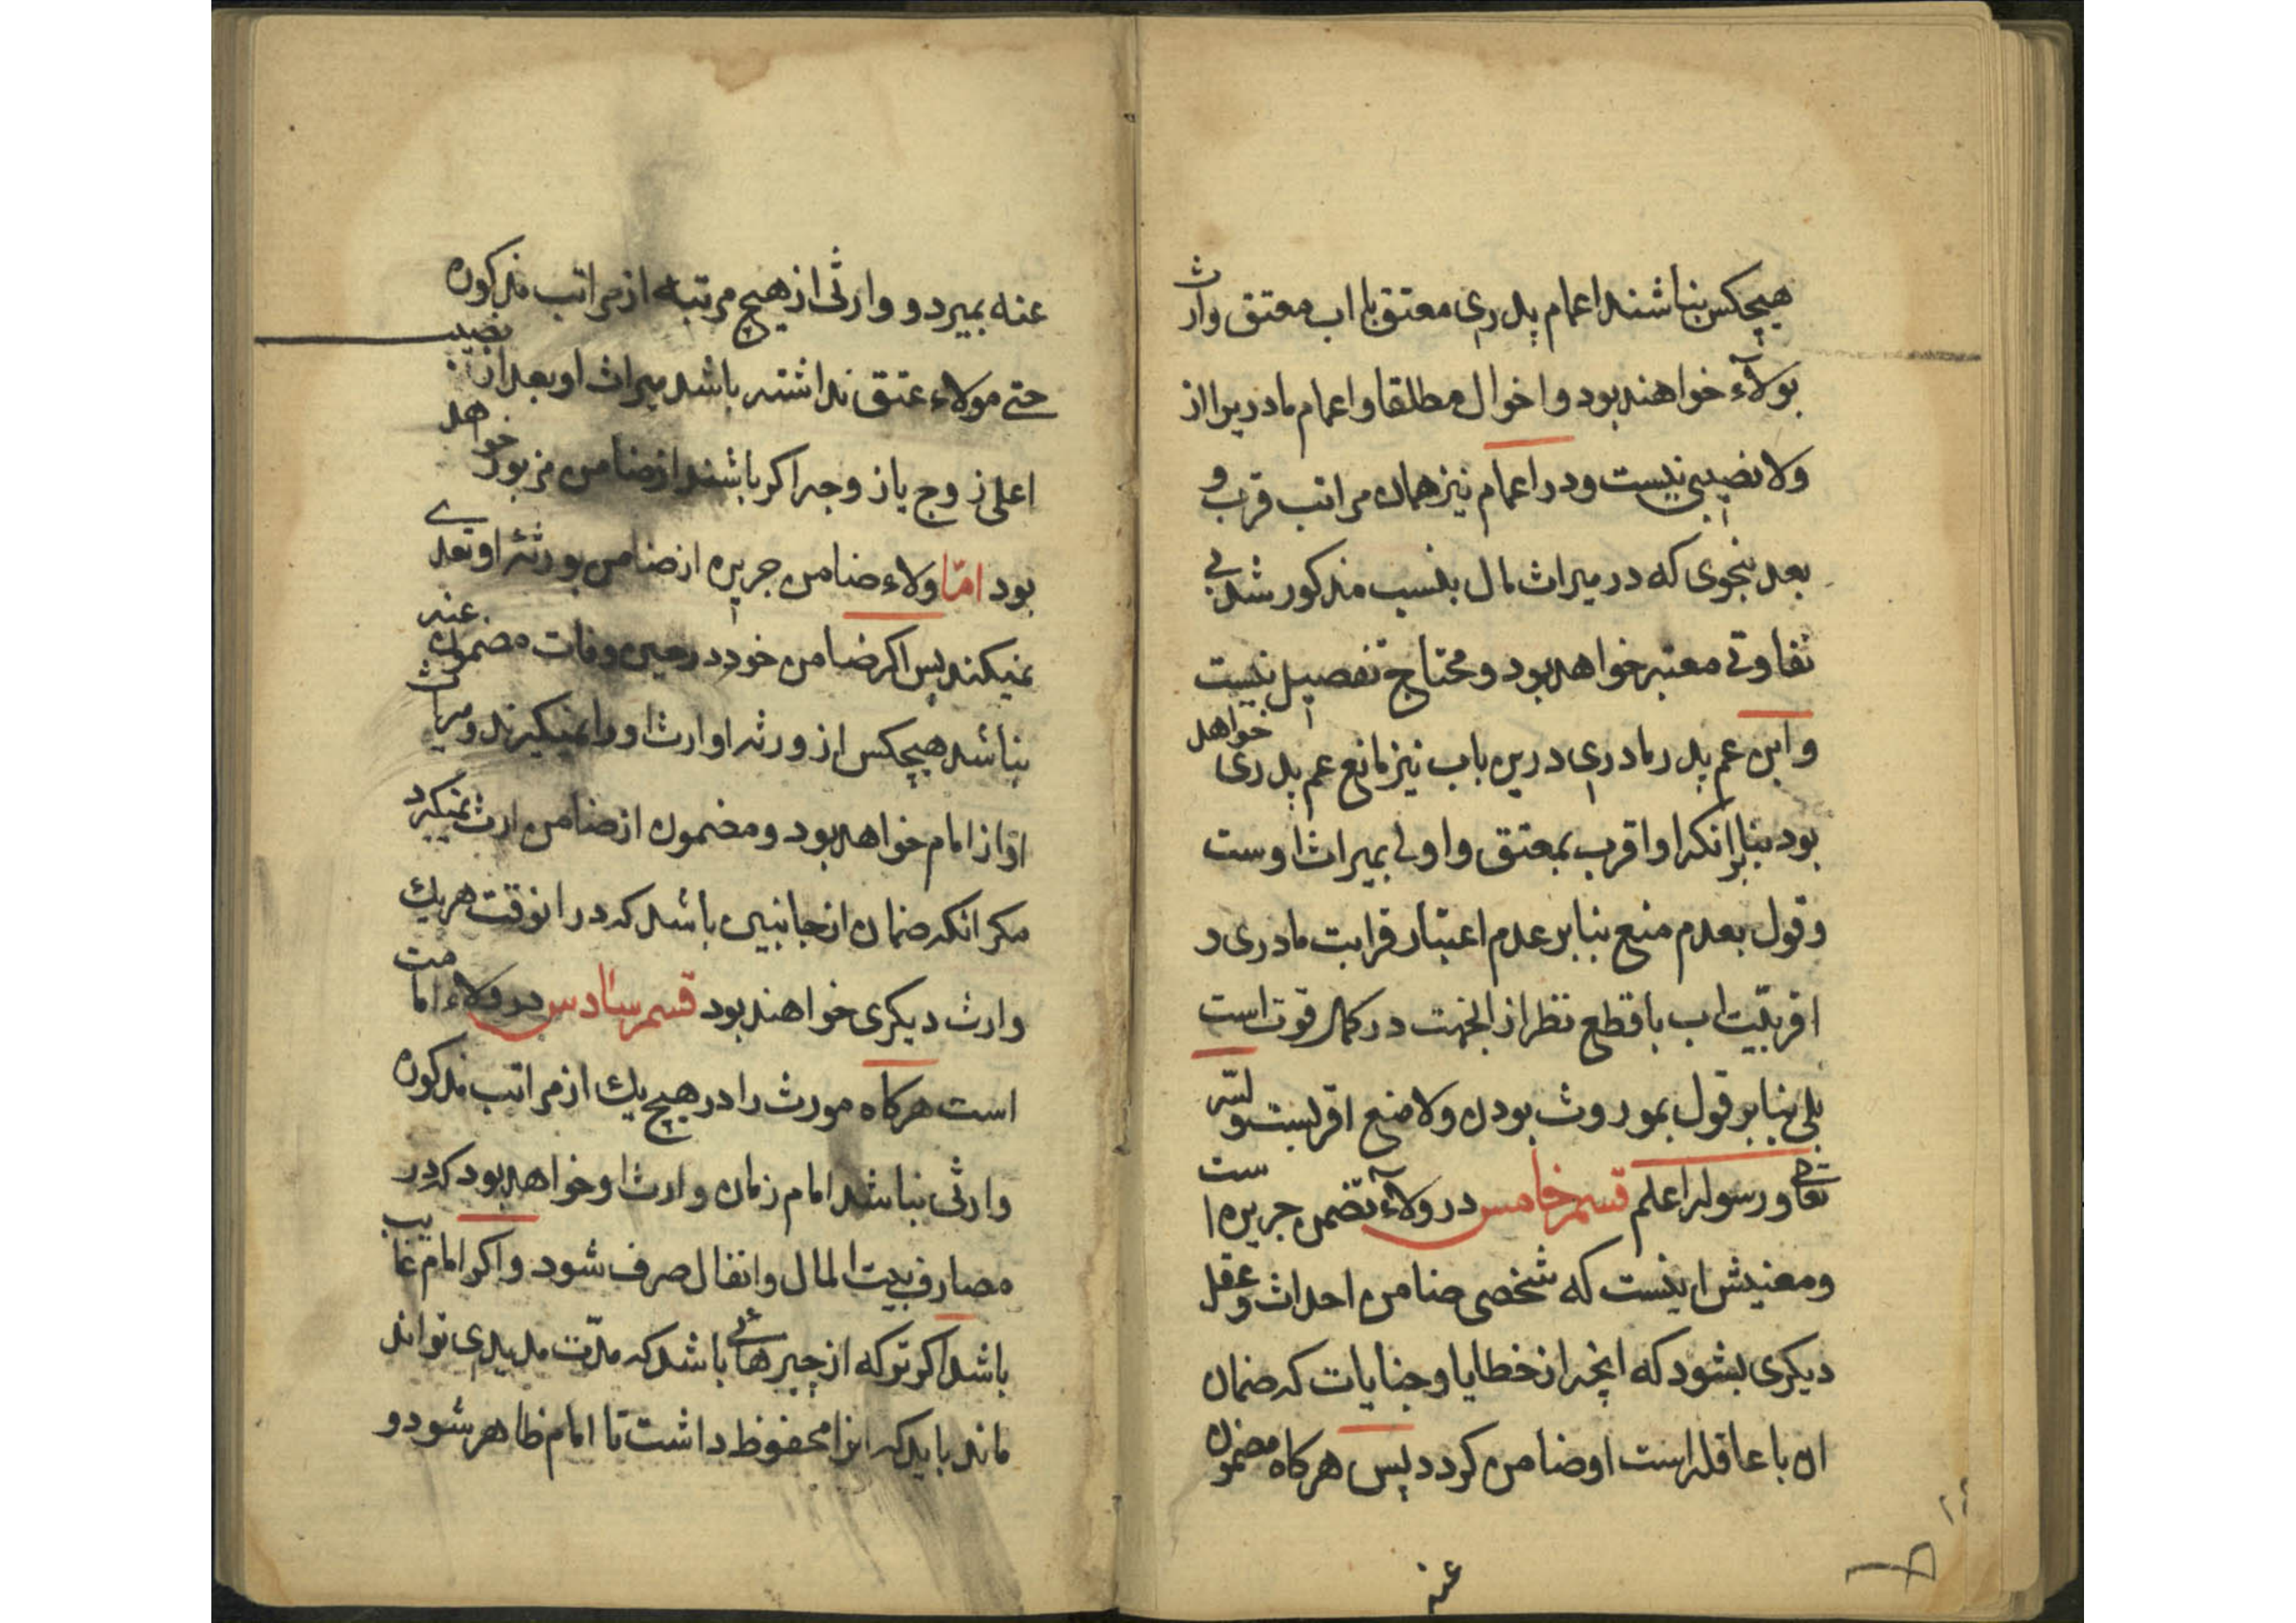 هیچکس نباشند اعمام پدری معتق با اب معتق وارث
بولآء خواهند بود و اخوال مطلقا و اعمام مادریرا از
ولا نصیبی نیست و در اعمام نیز همان مراتب قرب و
بعد بنحوی که در میراث مال بنسب مذکور شد بی
تفاوتی معتبر خواهد بود و محتاج تفصیل نیست
و ابن عم پدر مادری درین باب نیز مانع عم پدری خواهد
بود بنابرانکه او اقرب بمعتق و اولی بمیراث اوست
و قول بعدم منع بنابر عدم اعتبار قرابت مادری و
اقربیّت اب با قطع نظر از انجهت در کمال قوت است
بلی بنابر قول بموروث بودن ولا منع اقربست والله
تعالی و رسوله اعلم قسم خامس در ولآء تضمن جریره است
و معنیش اینست که شخصی ضامن احداث و عقل
دیکری بشود که انچه از خطایا و جنایات که ضمان
ان با عاقله است او ضامن کردد پس هرکاه مضمون
عنه
عنه بمیرد و وارثی از هیچ مرتبه از مراتب مذکوره
حتی مولاء عتق نداشته باشد میراث او بعد از نصیب
اعلی زوج یا زوجه اکر باشند از ضامن مزبور خواهد
بود امّا ولاء ضامن جریره از ضامن بورثهٔ او تعدی
نمیکند پس اکر ضامن خود در حین وفات مضمون عنه
نباشد هیچکس از ورثه او ارث او را نمیکیرند و میراث
او از امام خواهد بود و مضمون از ضامن ارث نمیکیرد
مکر انکه ضمان از جانبین باشد که در انوقت هریك
وارث دیکری خواهند بود قسم سادس در ولاء امامت
است هرکاه مورث را در هیچ یك از مراتب مذکوره
وارثی نباشد امام زمان وارث او خواهد بود که در
مصارف بیت المال و انفال صرف شود و اکر امام غایب
باشد اکر ترکه از چیزهائی باشد که مدّت مدیدی تواند
ماند باید که انرا محفوظ داشت تا امام ظاهر شود و